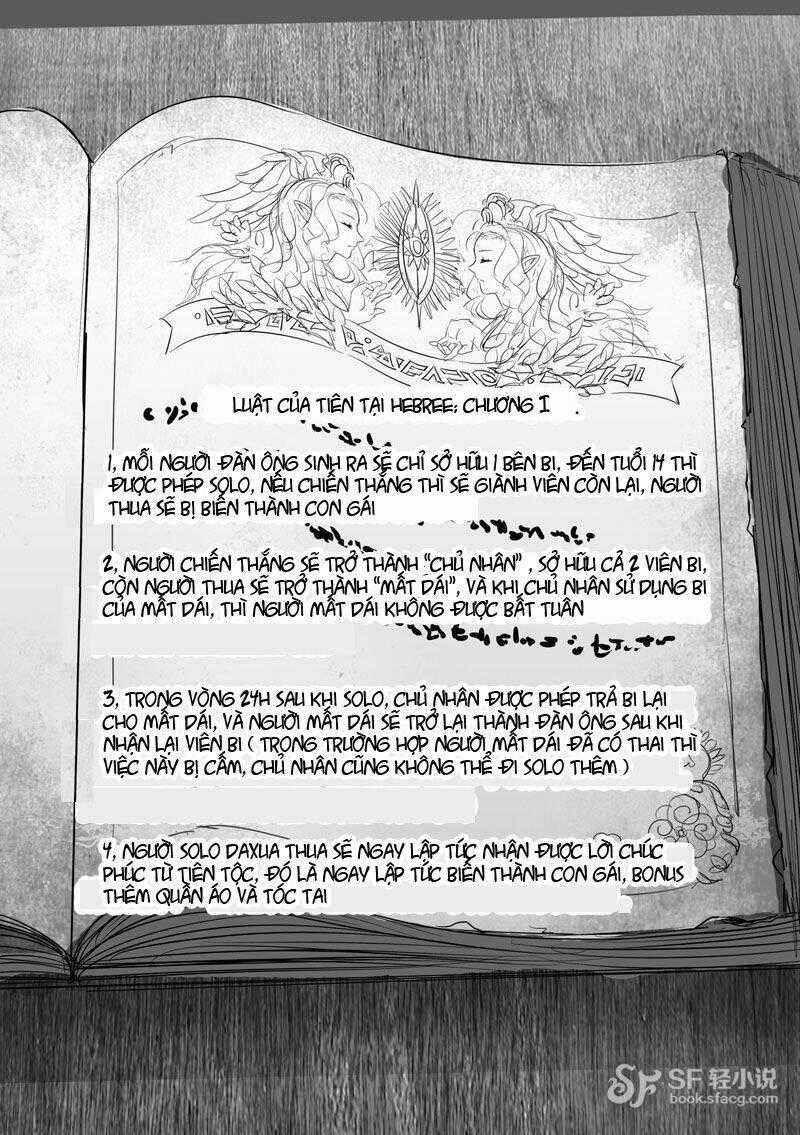 LUẬT CỦA TIÊN TẠI HEBREE; CHƯƠNG I
1, MỖI NGƯỜI ĐÀN ÔNG SINH RA SẼ CHỈ SỞ HỮU 1 BÊN BI, ĐẾN TUỔI 14 THÌ
ĐƯỢC PHÉP SOLO, NẾU CHIẾN THẮNG THÌ SẼ GIÀNH VIÊN CÒN LẠI, NGƯỜI
THUA SẼ BỊ BIẾN THÀNH CON GÁI
2, NGƯỜI CHIẾN THẮNG SẼ TRỞ THÀNH "CHỦ NHÂN", SỞ HỮU CẢ 2 VIÊN BI,
CÒN NGƯỜI THUA SẼ TRỞ THÀNH "MẤT DÁI", VÀ KHI CHỦ NHÂN SỬ DỤNG BI
CỦA MẤT DÁI, THÌ NGƯỜI MẤT DÁI KHÔNG ĐƯỢC BẤT TUÂN
3, TRONG VÒNG 24H SAU KHI SOLO, CHỦ NHÂN ĐƯỢC PHÉP TRẢ BI LẠI
CHO MẤT DÁI, VÀ NGƯỜI MẤT DÁI SẼ TRỞ LẠI THÀNH ĐÀN ÔNG SAU KHI
NHẬN LẠI VIÊN BI ( TRONG TRƯỜNG HỢP NGƯỜI MẤT DÁI ĐÃ CÓ THAI THÌ
VIỆC NÀY BỊ CẤM, CHỦ NHÂN CŨNG KHÔNG THỂ ĐI SOLO THÊM )
4, NGƯỜI SOLO DAXUA THUA SẼ NGAY LẬP TỨC NHẬN ĐƯỢC LỜI CHÚC
PHÚC TỪ TIÊN TỘC, ĐÓ LÀ NGAY LẬP TỨC BIẾN THÀNH CON GÁI, BONUS
THÊM QUẦN ÁO VÀ TÓC TAI
SF 轻小说
book.sfacg.com